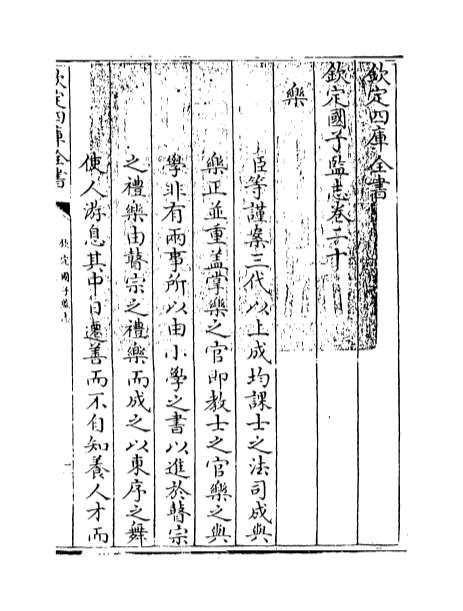 欽定四庫全書
欽定國子監志卷二十
樂
臣等謹案三代以上成均課士之法司成與
樂正並重蓋掌樂之官即教士之官樂之與
學非有兩事所以由小學之書以進於瞽宗
之禮樂由瞽宗之禮樂而成之以東序之舞
使人游息其中日遷善而不自知養人才而
欽定四庫全書
欽定國子監志
一